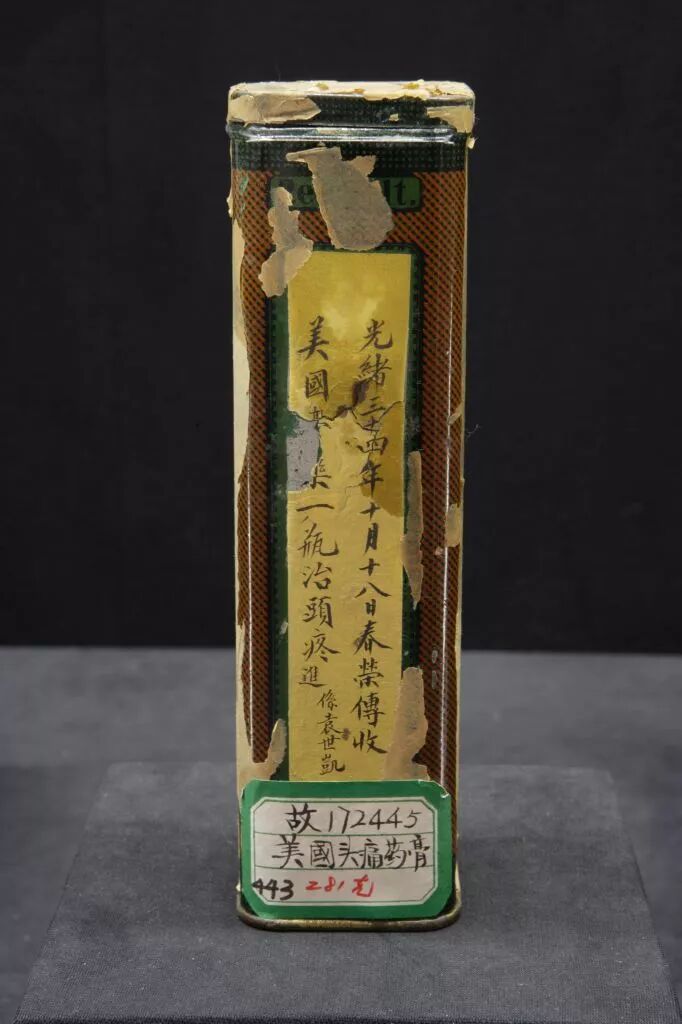 lt.
光緒三十四年十月十八日春榮傳收
美國 一瓶治頭疼
係袁世凱
進
故172445
美國头痛药膏
443 281克